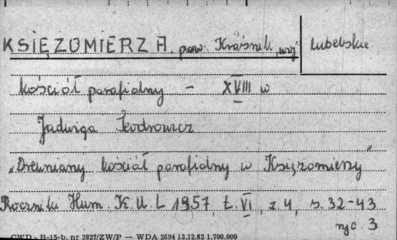 KSIĘŻOMIERZA pow. Kraśnik, woj
lubelskie
kościół parafialny – XVIII w
Jadwiga
„Drewniany kościół parafialny w Księżomierzy"
Roczniki Hum. K.U.L 1957, t. VI, z 4, s. 32-43
ryc. 3
GWD - H-15-b, nr 2827/ZW/P — WDA 2694 13.12.62 1.700.000